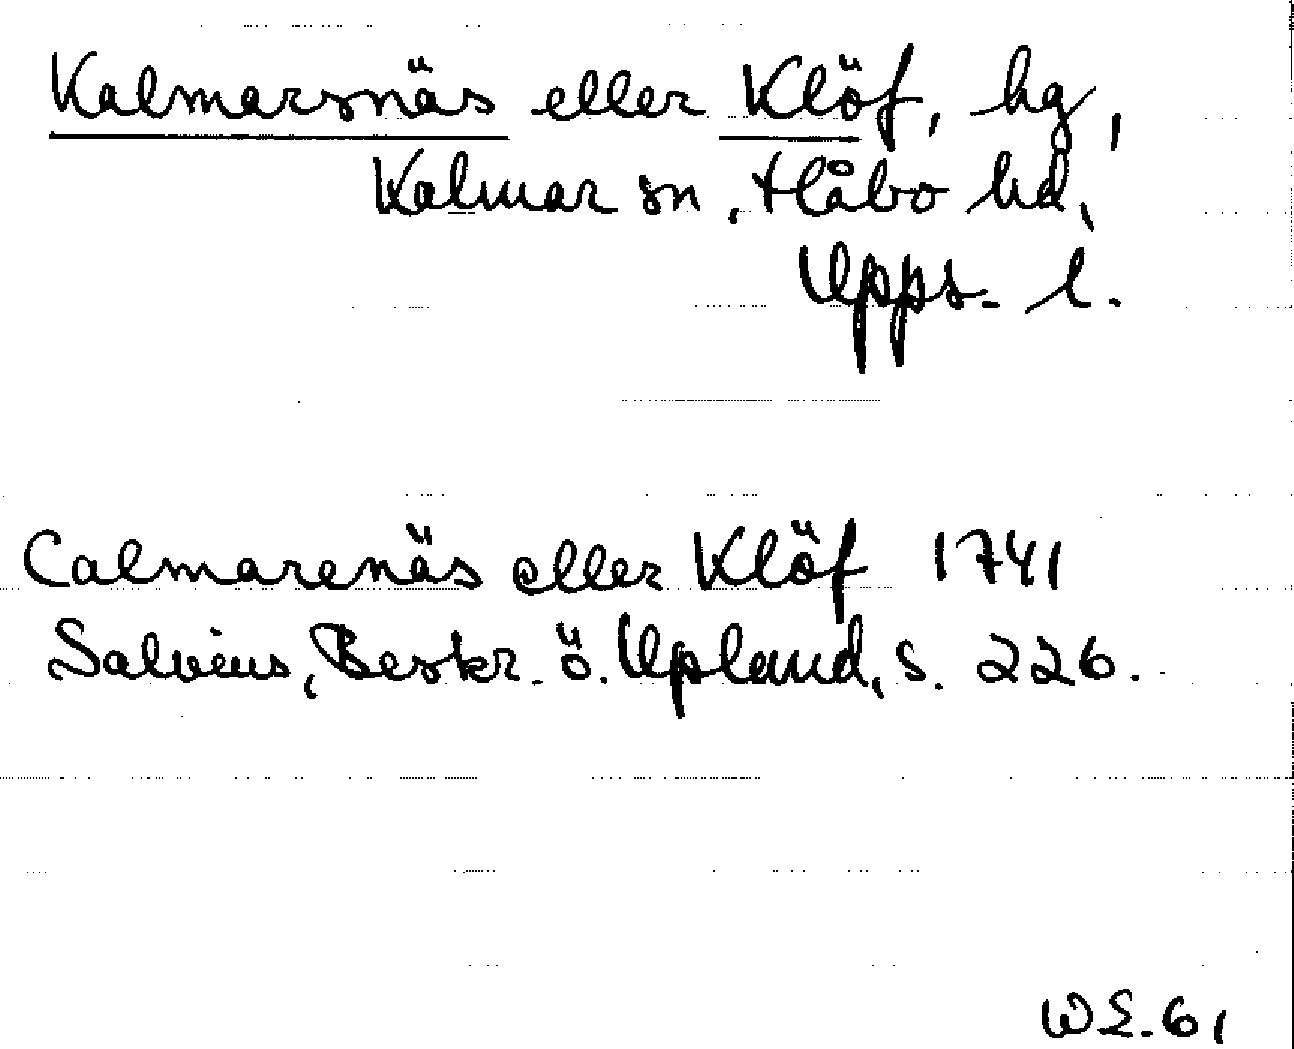 Kalmarsnäs eller Klöf, hg,
Kalmar sn, Håbo hd,
Upps. l.
Calmarenäs eller Klöf 1741
Salvius, Beskr. ö. Upland, s. 226.
WS. 61